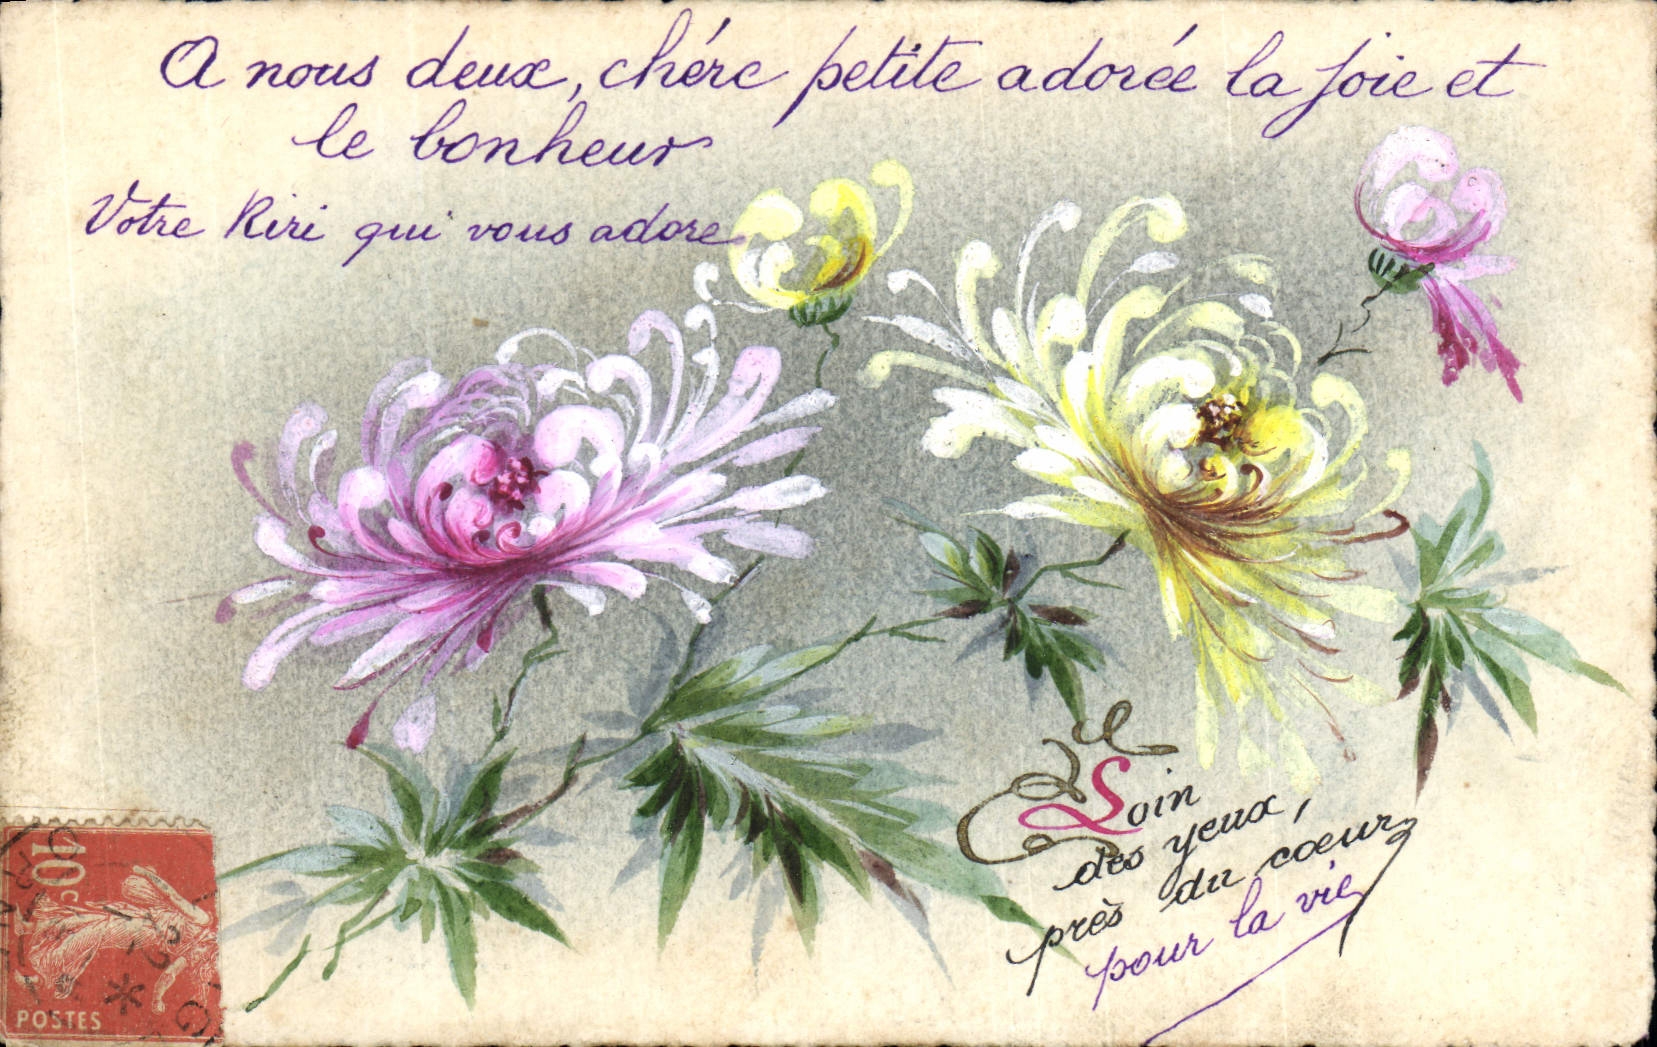 A nous deux, chére petite adorée la joie et
le bonheur
Votre Riri qui vous adore
Loin
des yeux,
près du cœur
pour la vie
10c
POSTES